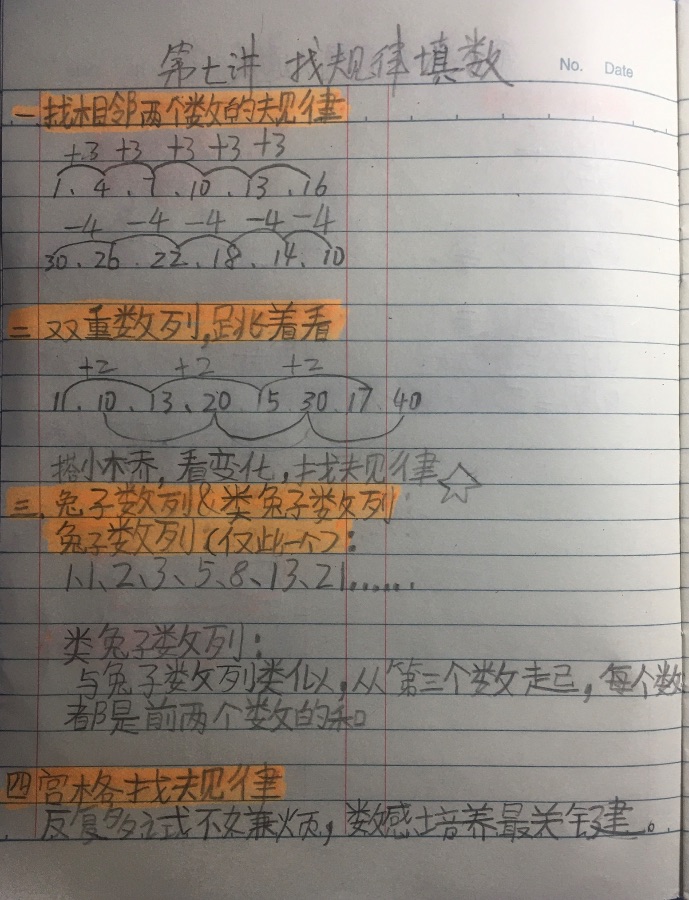 第七讲 找规律填数
No. Date
一 找相邻两个数的规律
+3 +3 +3 +3 +3
1、4、7、10、13、16
-4 -4 -4 -4 -4
30、26、22、18、14、10
二 双重数列,跳着看
+2 +2 +2
11、10、13、20 15 30、17、40
搭小木乔,看变化,找规律☆
三、兔子数列&类兔子数列
兔子数列(仅此一个):
1、1、2、3、5、8、13、21......
类兔子数列:
与兔子数列类似,从第三个数走已,每个数
都是前两个数的和。
四 宫格找规律
反复多试不女兼烦,数感培养最关键。